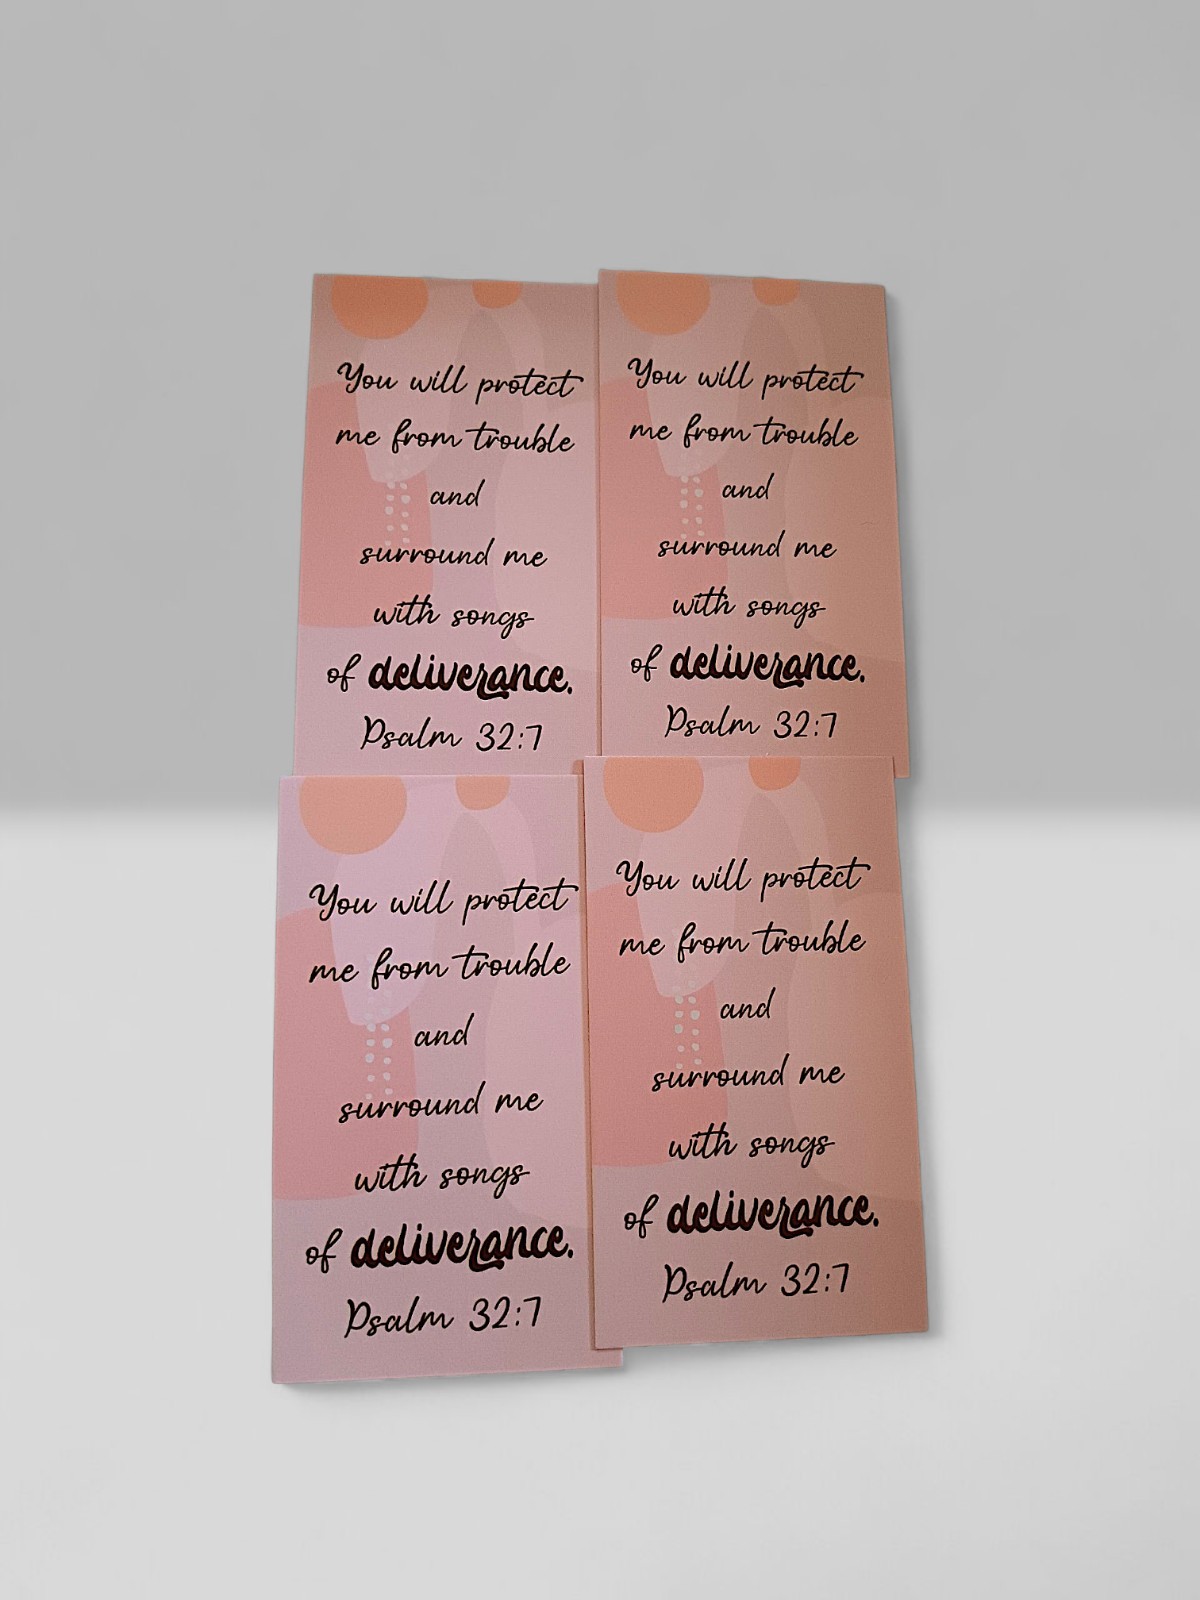 You will protect
me from trouble
and
surround me
with songs
of deliverance.
Psalm 32:7
You will protect
me from trouble
and
surround me
with songs
of deliverance.
Psalm 32:7
You will protect
me from trouble
and
surround me
with songs
of deliverance.
Psalm 32:7
You will protect
me from trouble
and
surround me
with songs
of deliverance.
Psalm 32:7